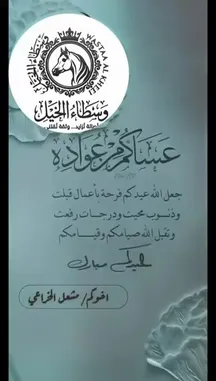 WASTAA AL KHEEL
وسطاء الخيل
وسطاء الخيل
عساكم من عواده
جعل الله عيدكم فرحة بأعمال قبلت
وذنوب محيت ودرجات رفعت
وتقبل الله صيامكم وقيامكم
عيدكم مبارك
اخوكم/ مشعل الخزاعي